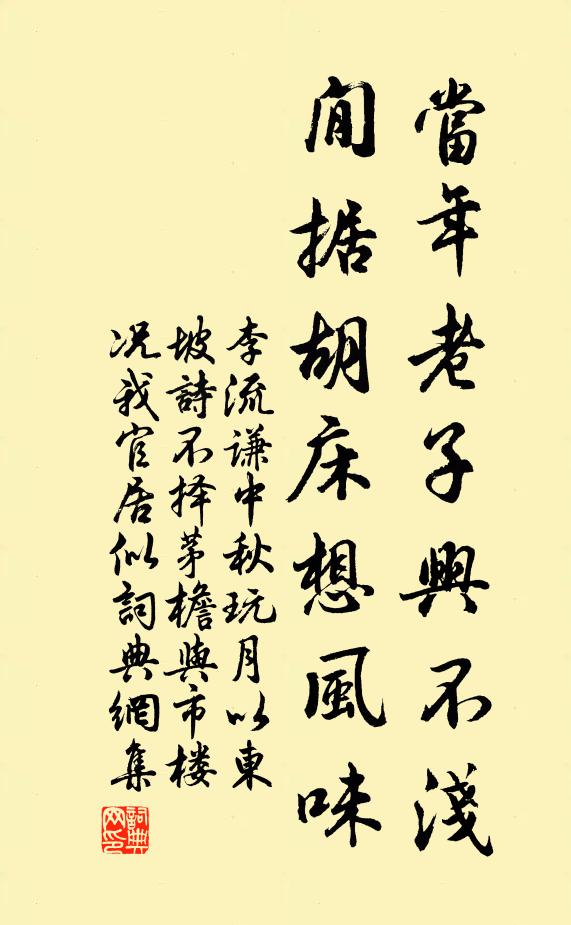 當年老子興不淺
閒据胡床想風味
李流谦中秋玩月以東
坡詩不择茅檐與市楼
况我官居似詞典網集
詞典
网印